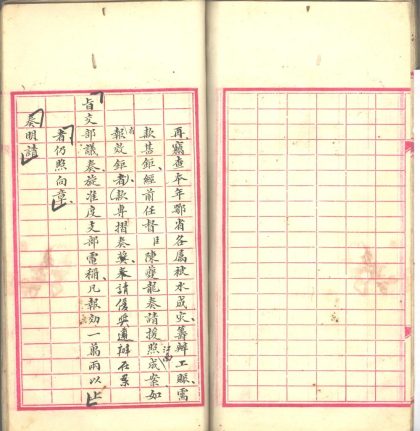 再竊查本年鄂省各属被水成灾籌辦工賑需
款甚鉅經前任督臣陳夔龍奏請援照江南成案如
有報效鉅款者專摺奏奬奉請優奬遵辦在案
旨交部議奏旋准度支部電稱凡報効一萬兩以上
者仍照向章
奏明請